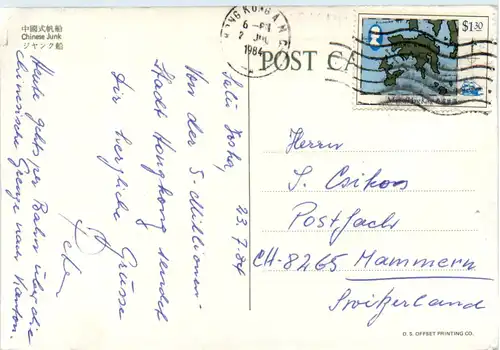 中國式帆船
Chinese Junk
ジャンク船
HONG KONG
6 - PM
2 JUL
1984
$1.30
POST CA
23.7.84
Von der 5-Millionen-
Stadt Hongkong sendet
Dir herzliche Grüsse
Heute gehts per Bahn über die
chinesische Grenze nach Kanton.
Herrn
J. Csikos
Postfach
CH-8265 Mammern
Switzerland
D. S. OFFSET PRINTING CO.